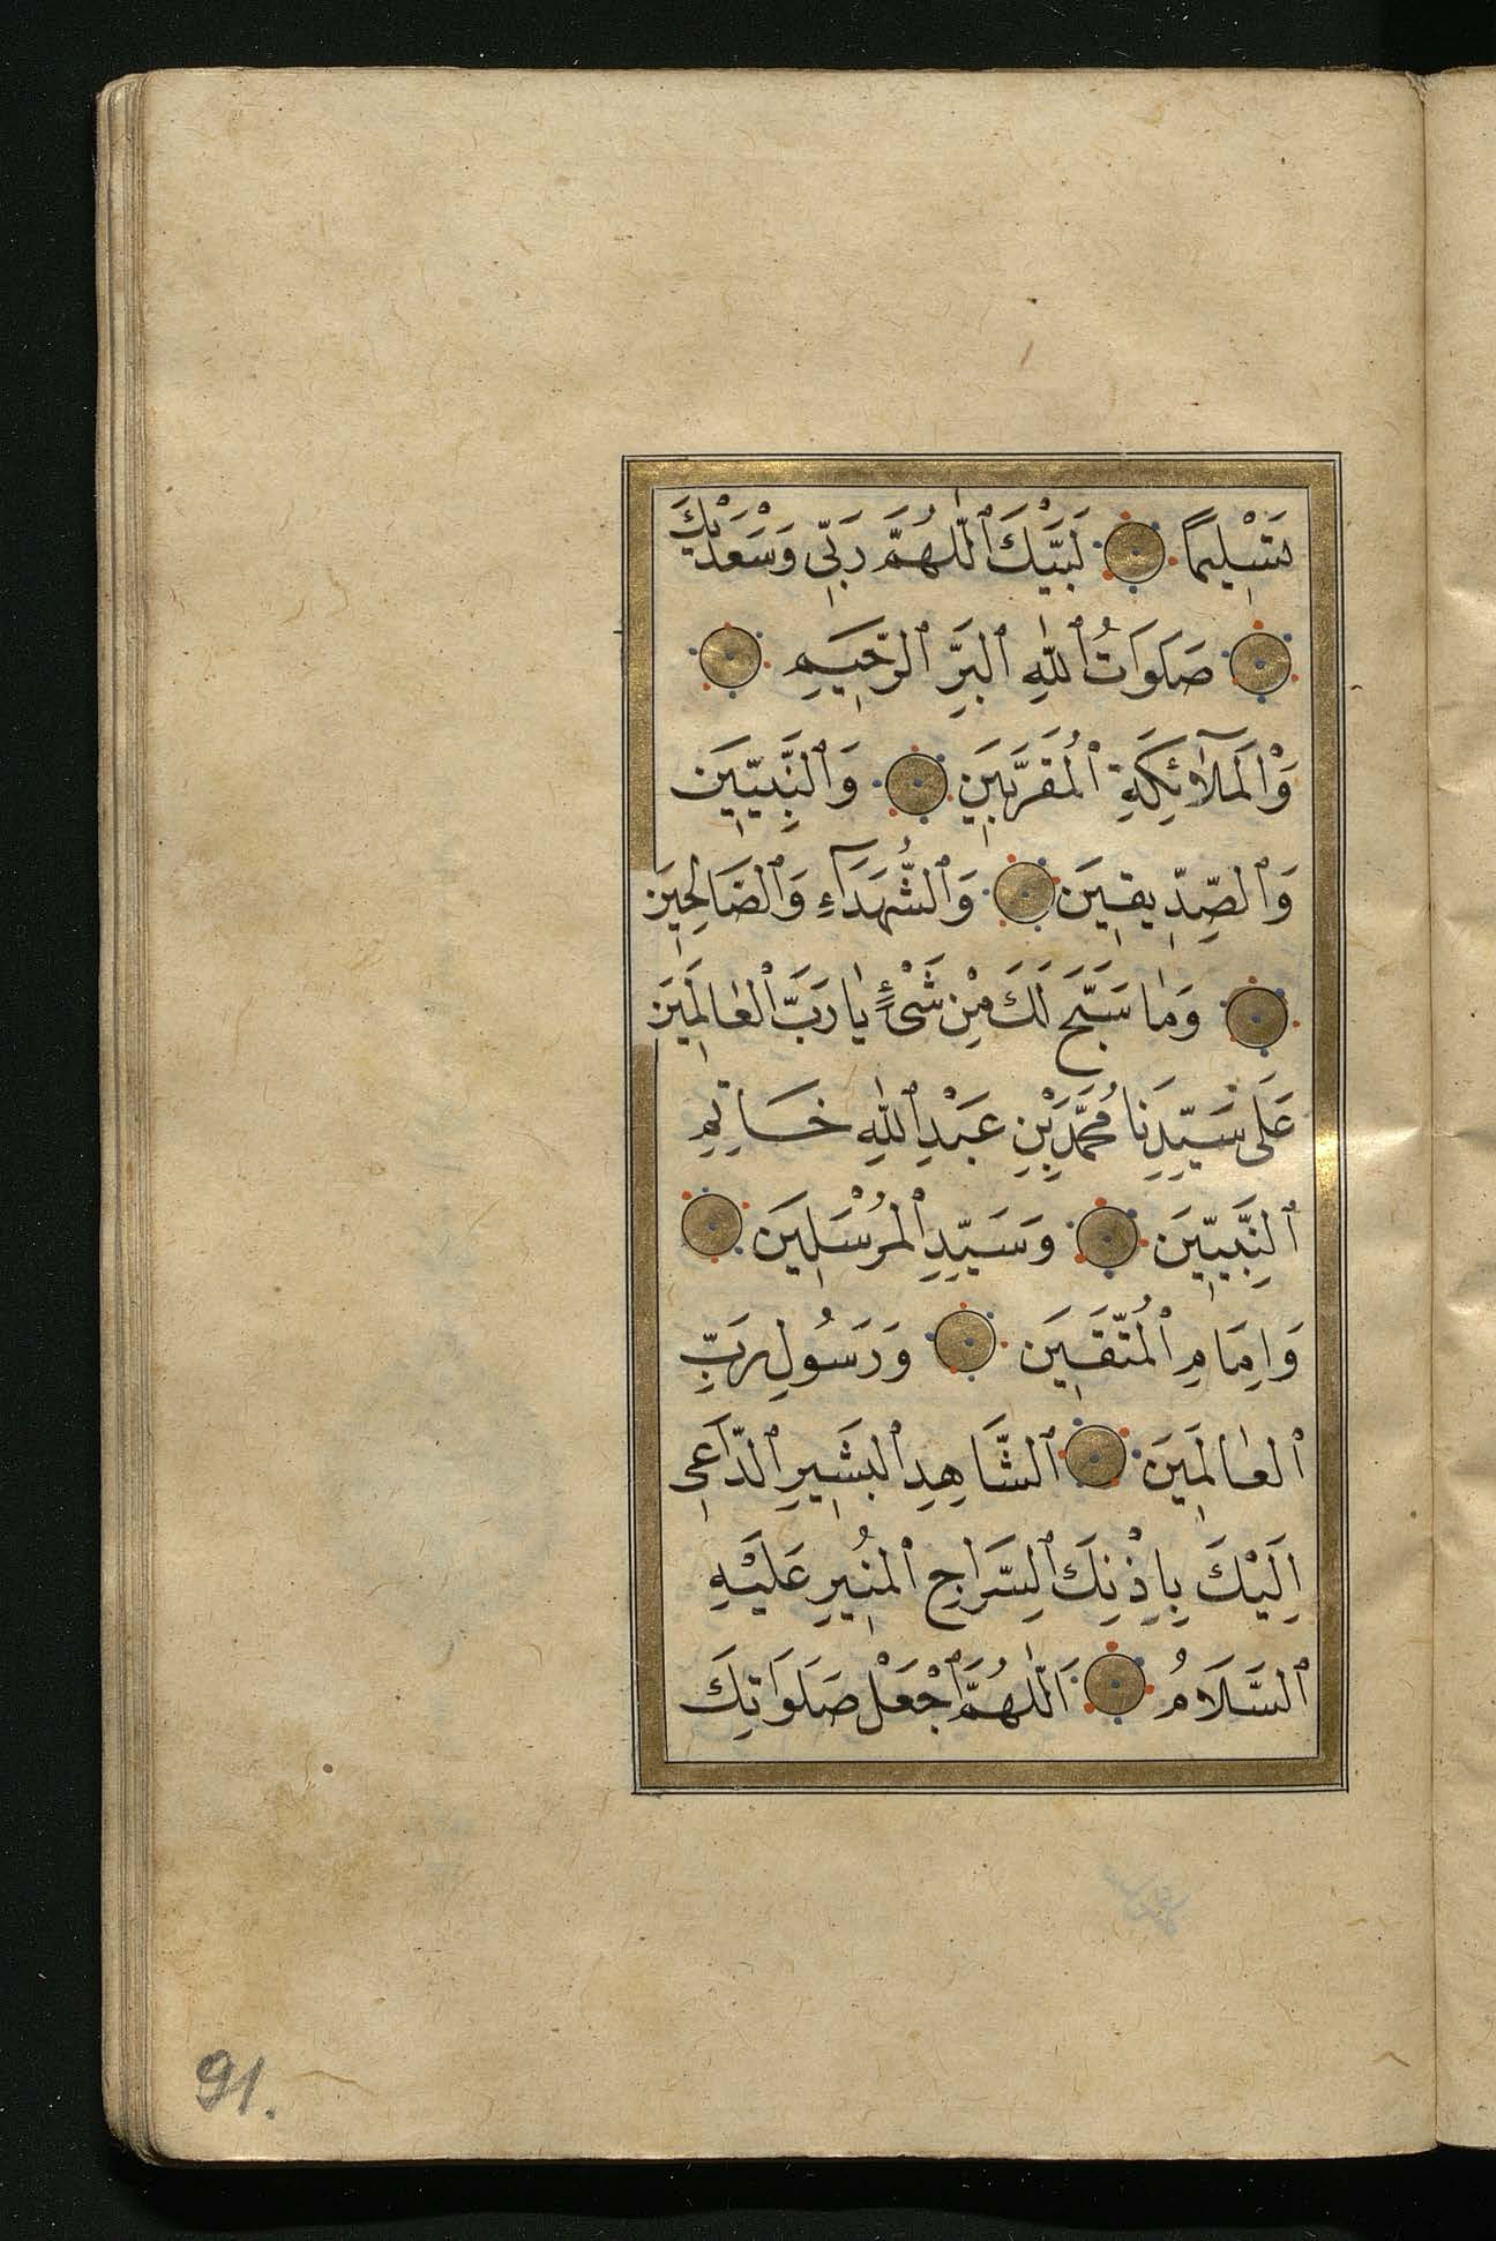 تَسْلِيمًا لَبَّيْكَ اَللّٰهُمَّ رَبِّي وَسَعْدَيْكَ
صَلَوَاتُ اللّٰهِ الْبَرِّ الرَّحِيمِ
وَالْمَلَآئِكَةِ الْمُقَرَّبِينَ وَالنَّبِيِّينَ
وَالصِّدِّيقِينَ وَالشُّهَدَآءِ وَالصَّالِحِينَ
وَمَا سَبَّحَ لَكَ مِنْ شَيْءٍ يَا رَبَّ الْعَالَمِينَ
عَلَى سَيِّدِنَا مُحَمَّدِ بْنِ عَبْدِ اللّٰهِ خَاتِمِ
النَّبِيِّينَ وَسَيِّدِ الْمُرْسَلِينَ
وَاِمَامِ الْمُتَّقِينَ وَرَسُولِ رَبِّ
الْعَالَمِينَ الشَّاهِدِ الْبَشِيرِ الدَّاعِي
اِلَيْكَ بِاِذْنِكَ السِّرَاجِ الْمُنِيرِ عَلَيْهِ
السَّلَامُ اَللّٰهُمَّ اجْعَلْ صَلَوَاتِكَ
91.